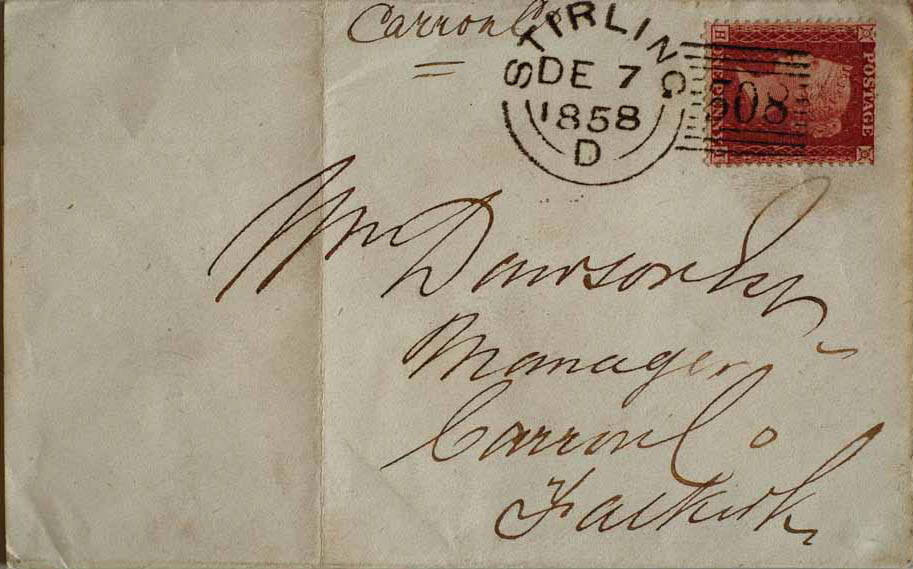 Carron Co
STIRLING
DE 7
1858
D
508
POSTAGE
ONE PENNY
H
Wm Dawson Esqr
Manager
Carron Co
Falkirk